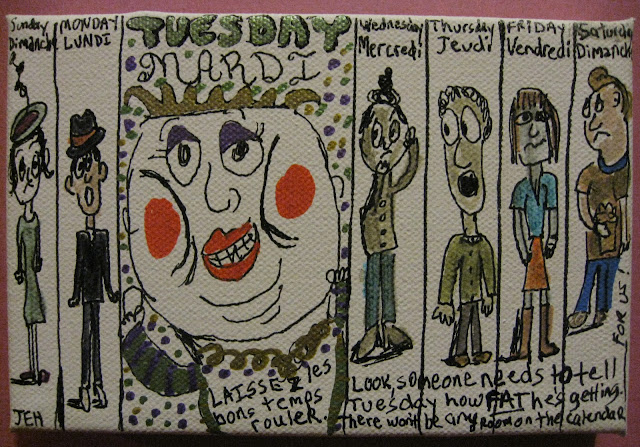 Sunday
Dimanche
MONDAY
LUNDI
TUESDAY
MARDI
Wednesday
Mercredi
Thursday
Jeudi
FRiDAY
Vendredi
Saturday
Dimanch
JEH
LAISSEZ les
bons temps
rouler.
Look, someone needs to tell
Tuesday how FAT he's getting.
There won't be any ROOM on the calendar
FOR US!